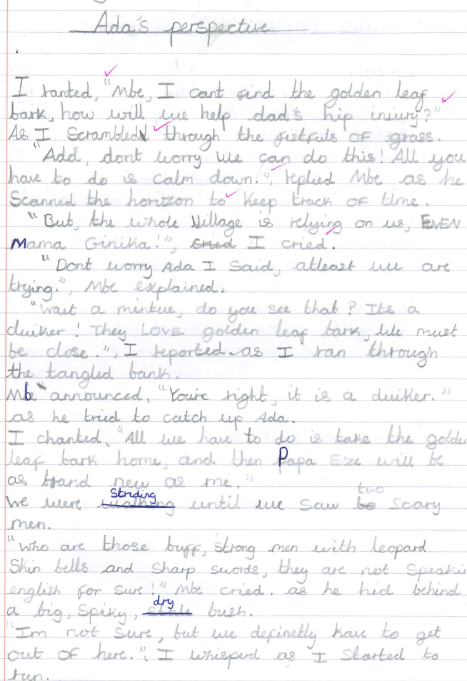 Ada's perspective
I ranted, "Mbe, I cant find the golden leaf
bark, how will we help dad's hip injury?"
As I scrambled through the fistfuls of grass.
"Add, dont worry we can do this! All you
have to do is calm down.", replied Mbe as he
Scanned the horizon to keep track of time.
"But, the whole Village is relying on us, EVEN
Mama Ginika!", cried I cried.
"Dont worry Ada I said, atleast we are
trying.", Mbe explained.
"wait a mintue, do you see that? Its a
duiker! They LOVE golden leaf bark, We must
be close.", I reported as I ran through
the tangled bank.
Mbe announced, "You're right, it is a duiker."
as he tried to catch up Ada.
I chanted, "All we have to do is take the golde
leaf bark home, and then Papa Eze will be
as brand new as me."
We were walking Striding until we saw to two Scary
men.
"Who are those buff, strong men with leopard
Skin belts and sharp swords, they are not Speakin
english for sure!" Mbe cried. as he hid behind
a big, Spiky, dry bush.
"Im not Sure, but we definetly have to get
out of here.", I whisperd as I Started to
run.